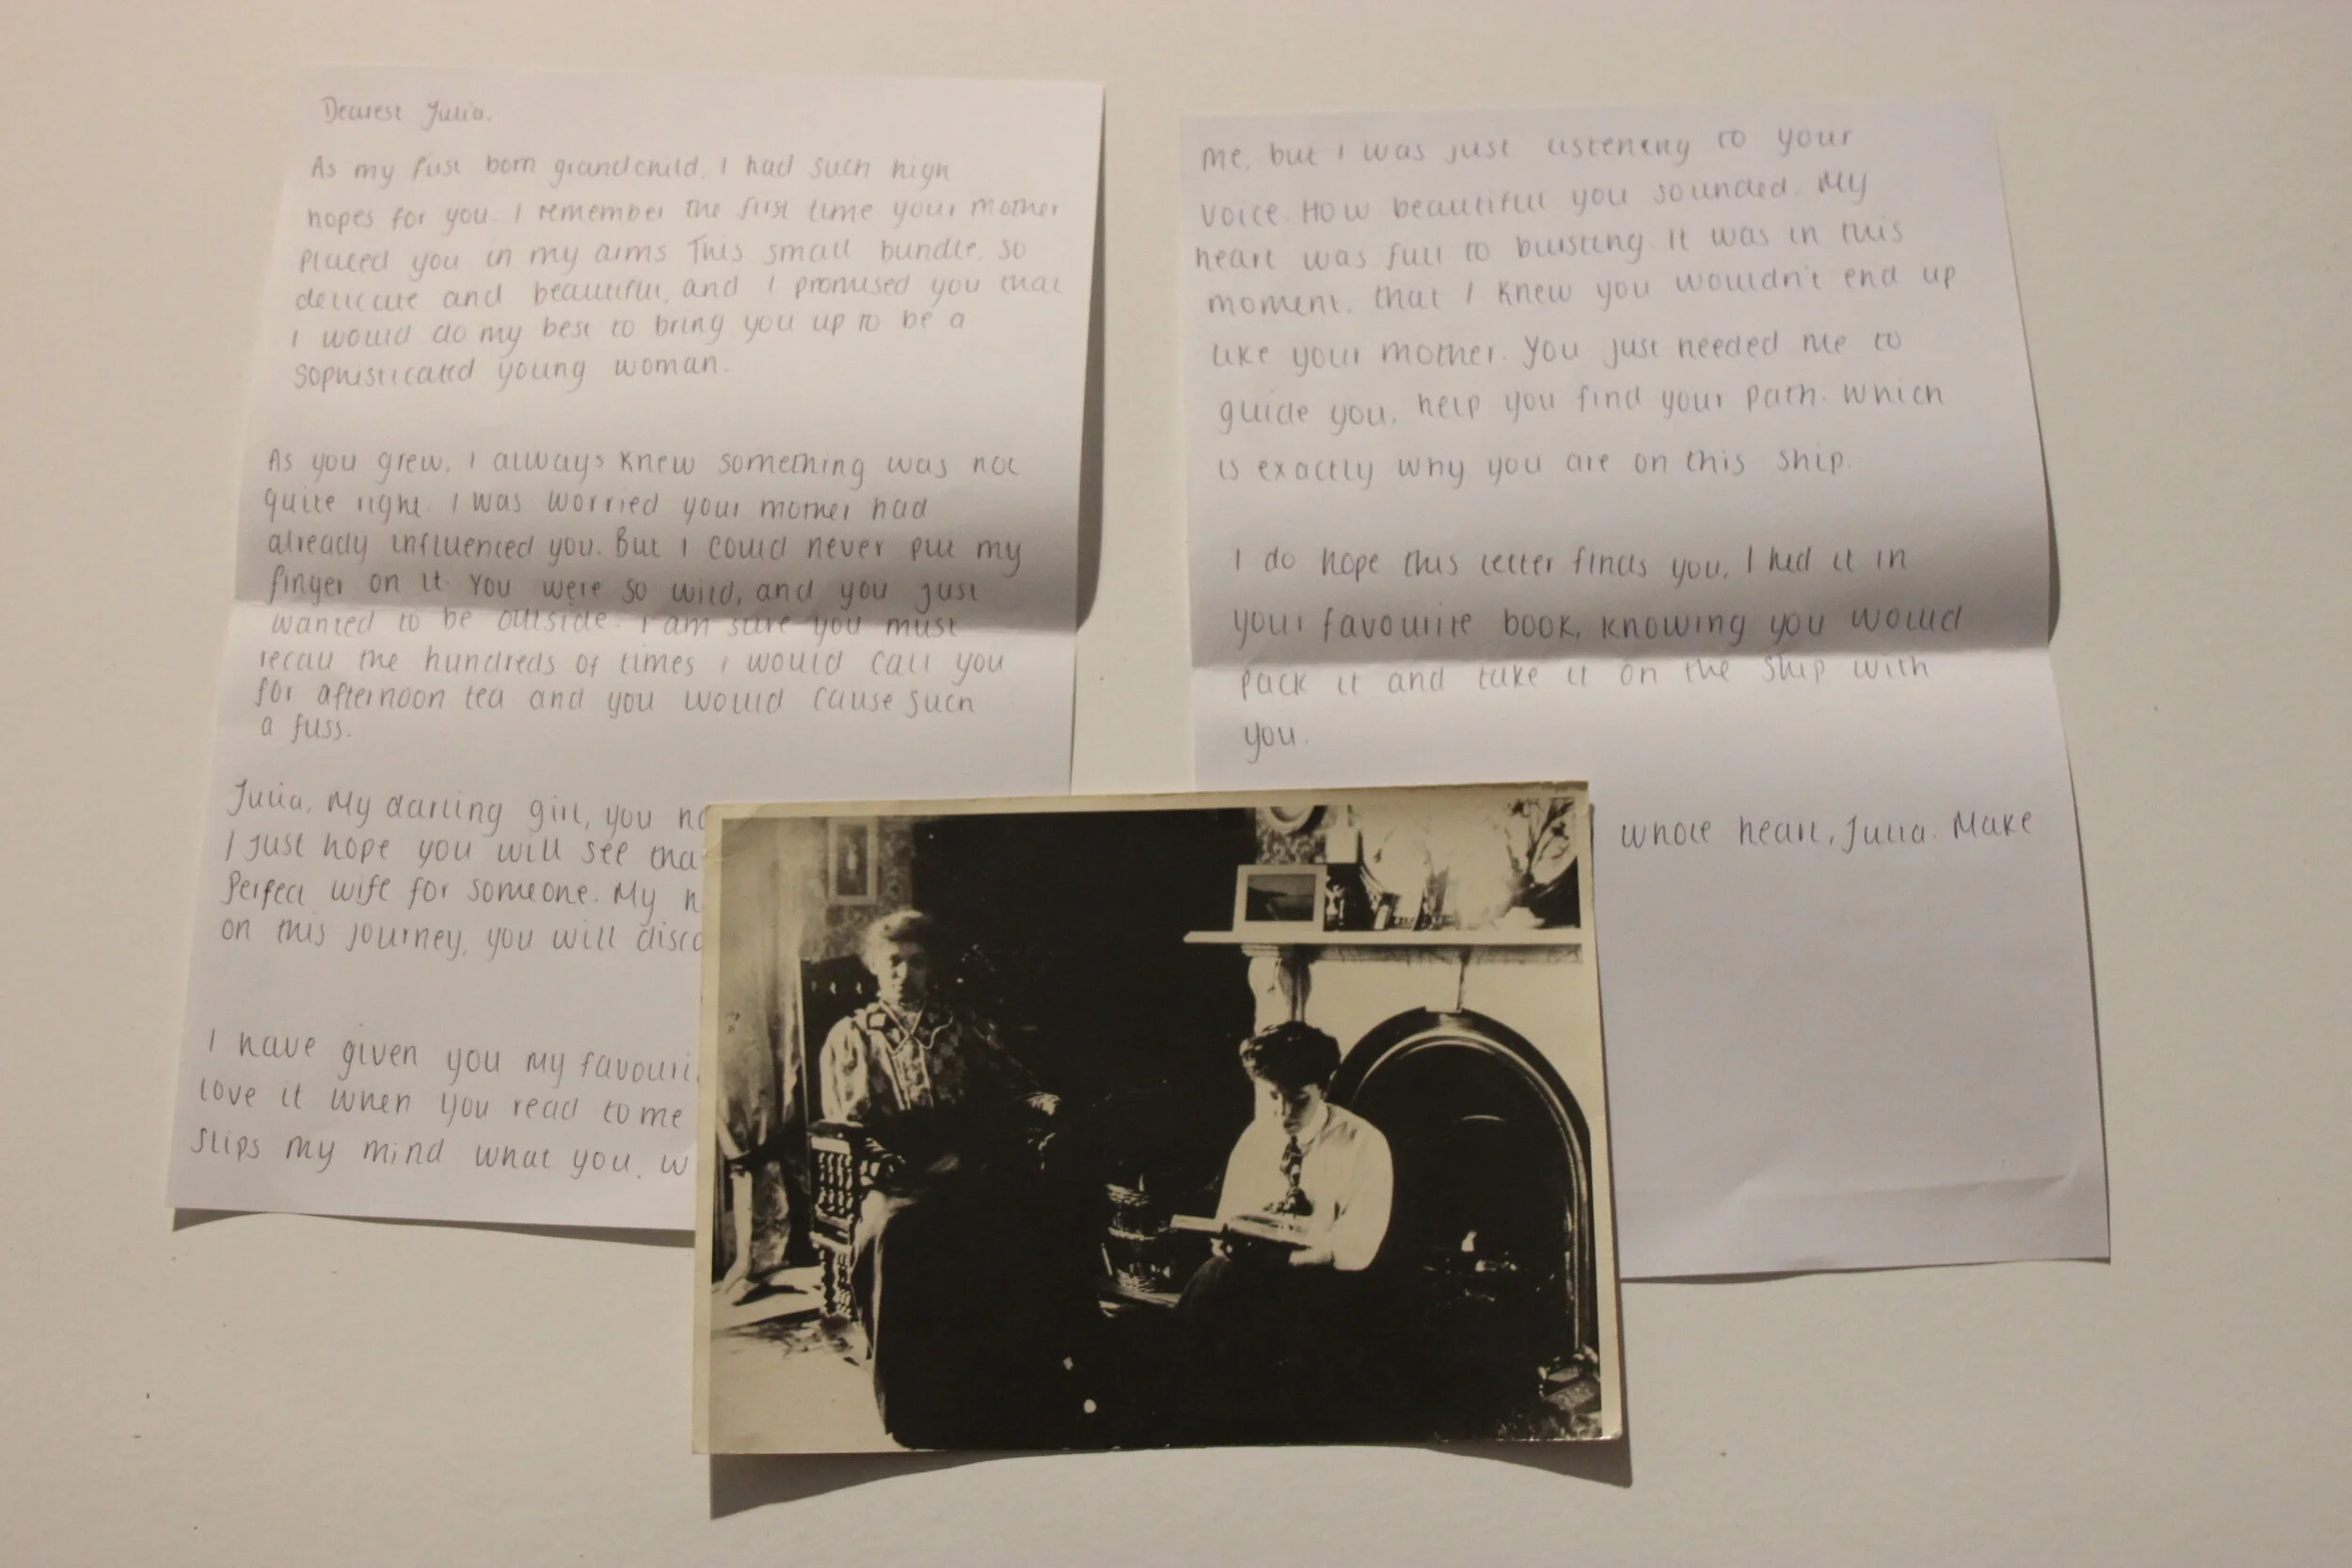 Dearest Julia.
As my first born grandchild, I had such high
hopes for you. I remember the first time your mother
placed you in my arms This small bundle, so
delicate and beautiful, and I promised you that
I would do my best to bring you up to be a
sophisticated young woman.
As you grew, I always knew something was not
quite right. I was worried your mother had
already influenced you. But I could never put my
finger on it. You were so wild, and you just
wanted to be outside. I am sure you must
recall the hundreds of times I would call you
for afternoon tea and you would cause such
a fuss.
Julia, My darling girl, you
I just hope you will see
Perfect wife for someone. My
on this journey, you will
I have given you my
love it when you read to me
slips my mind what you.
me, but I was just listening to your
voice. How beautiful you sounded. My
heart was full to bursting. It was in this
moment, that I knew you wouldn't end up
like your mother. You just needed me to
guide you, help you find your path. Which
is exactly why you are on this ship.
I do hope this letter finds you, I hid it in
your favourite book, knowing you would
pack it and take it on the ship with
you.
whole heart, Julia. Make